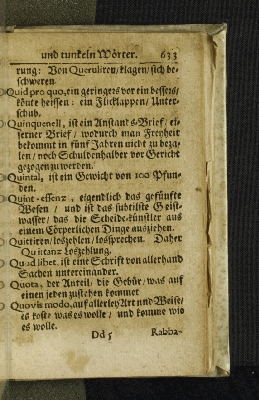 und tunkeln Wörter. 633
rung: Von Queruliren/ klagen/ sich be-
schweren.
Quid pro quo, ein geringers vor ein bessers/
könte heissen: ein Flicklappen/ Unter-
schub.
Quinquenell, ist ein Anstands-Brief/ ei-
serner Brief/ wodurch man Freyheit
bekommt in fünf Jahren nicht zu beza-
len/ noch Schulden halber vor Gericht
gezogen zu werden.
Quintal, ist ein Gewicht von 100 Pfun-
den.
Quint-essenz, eigendlich das gefünfte
Wesen/ und ist das subtilste Geist-
wasser/ das die Scheide-künstler aus
einem Cörperlichen Dinge ausziehen.
Quittiren/ loszehlen/ lossprechen. Daher
Quittanz Loszehlung.
Quodlibet, ist eine Schrift von allerhand
Sachen untereinander.
Quota, der Anteil/ die Gebür/ was auf
einen jeden zustehen kommet
Quovis modo, auf allerley Art und Weise/
es koste was es wolle/ und komme wie
es wolle.
Dd 5 Rabba-